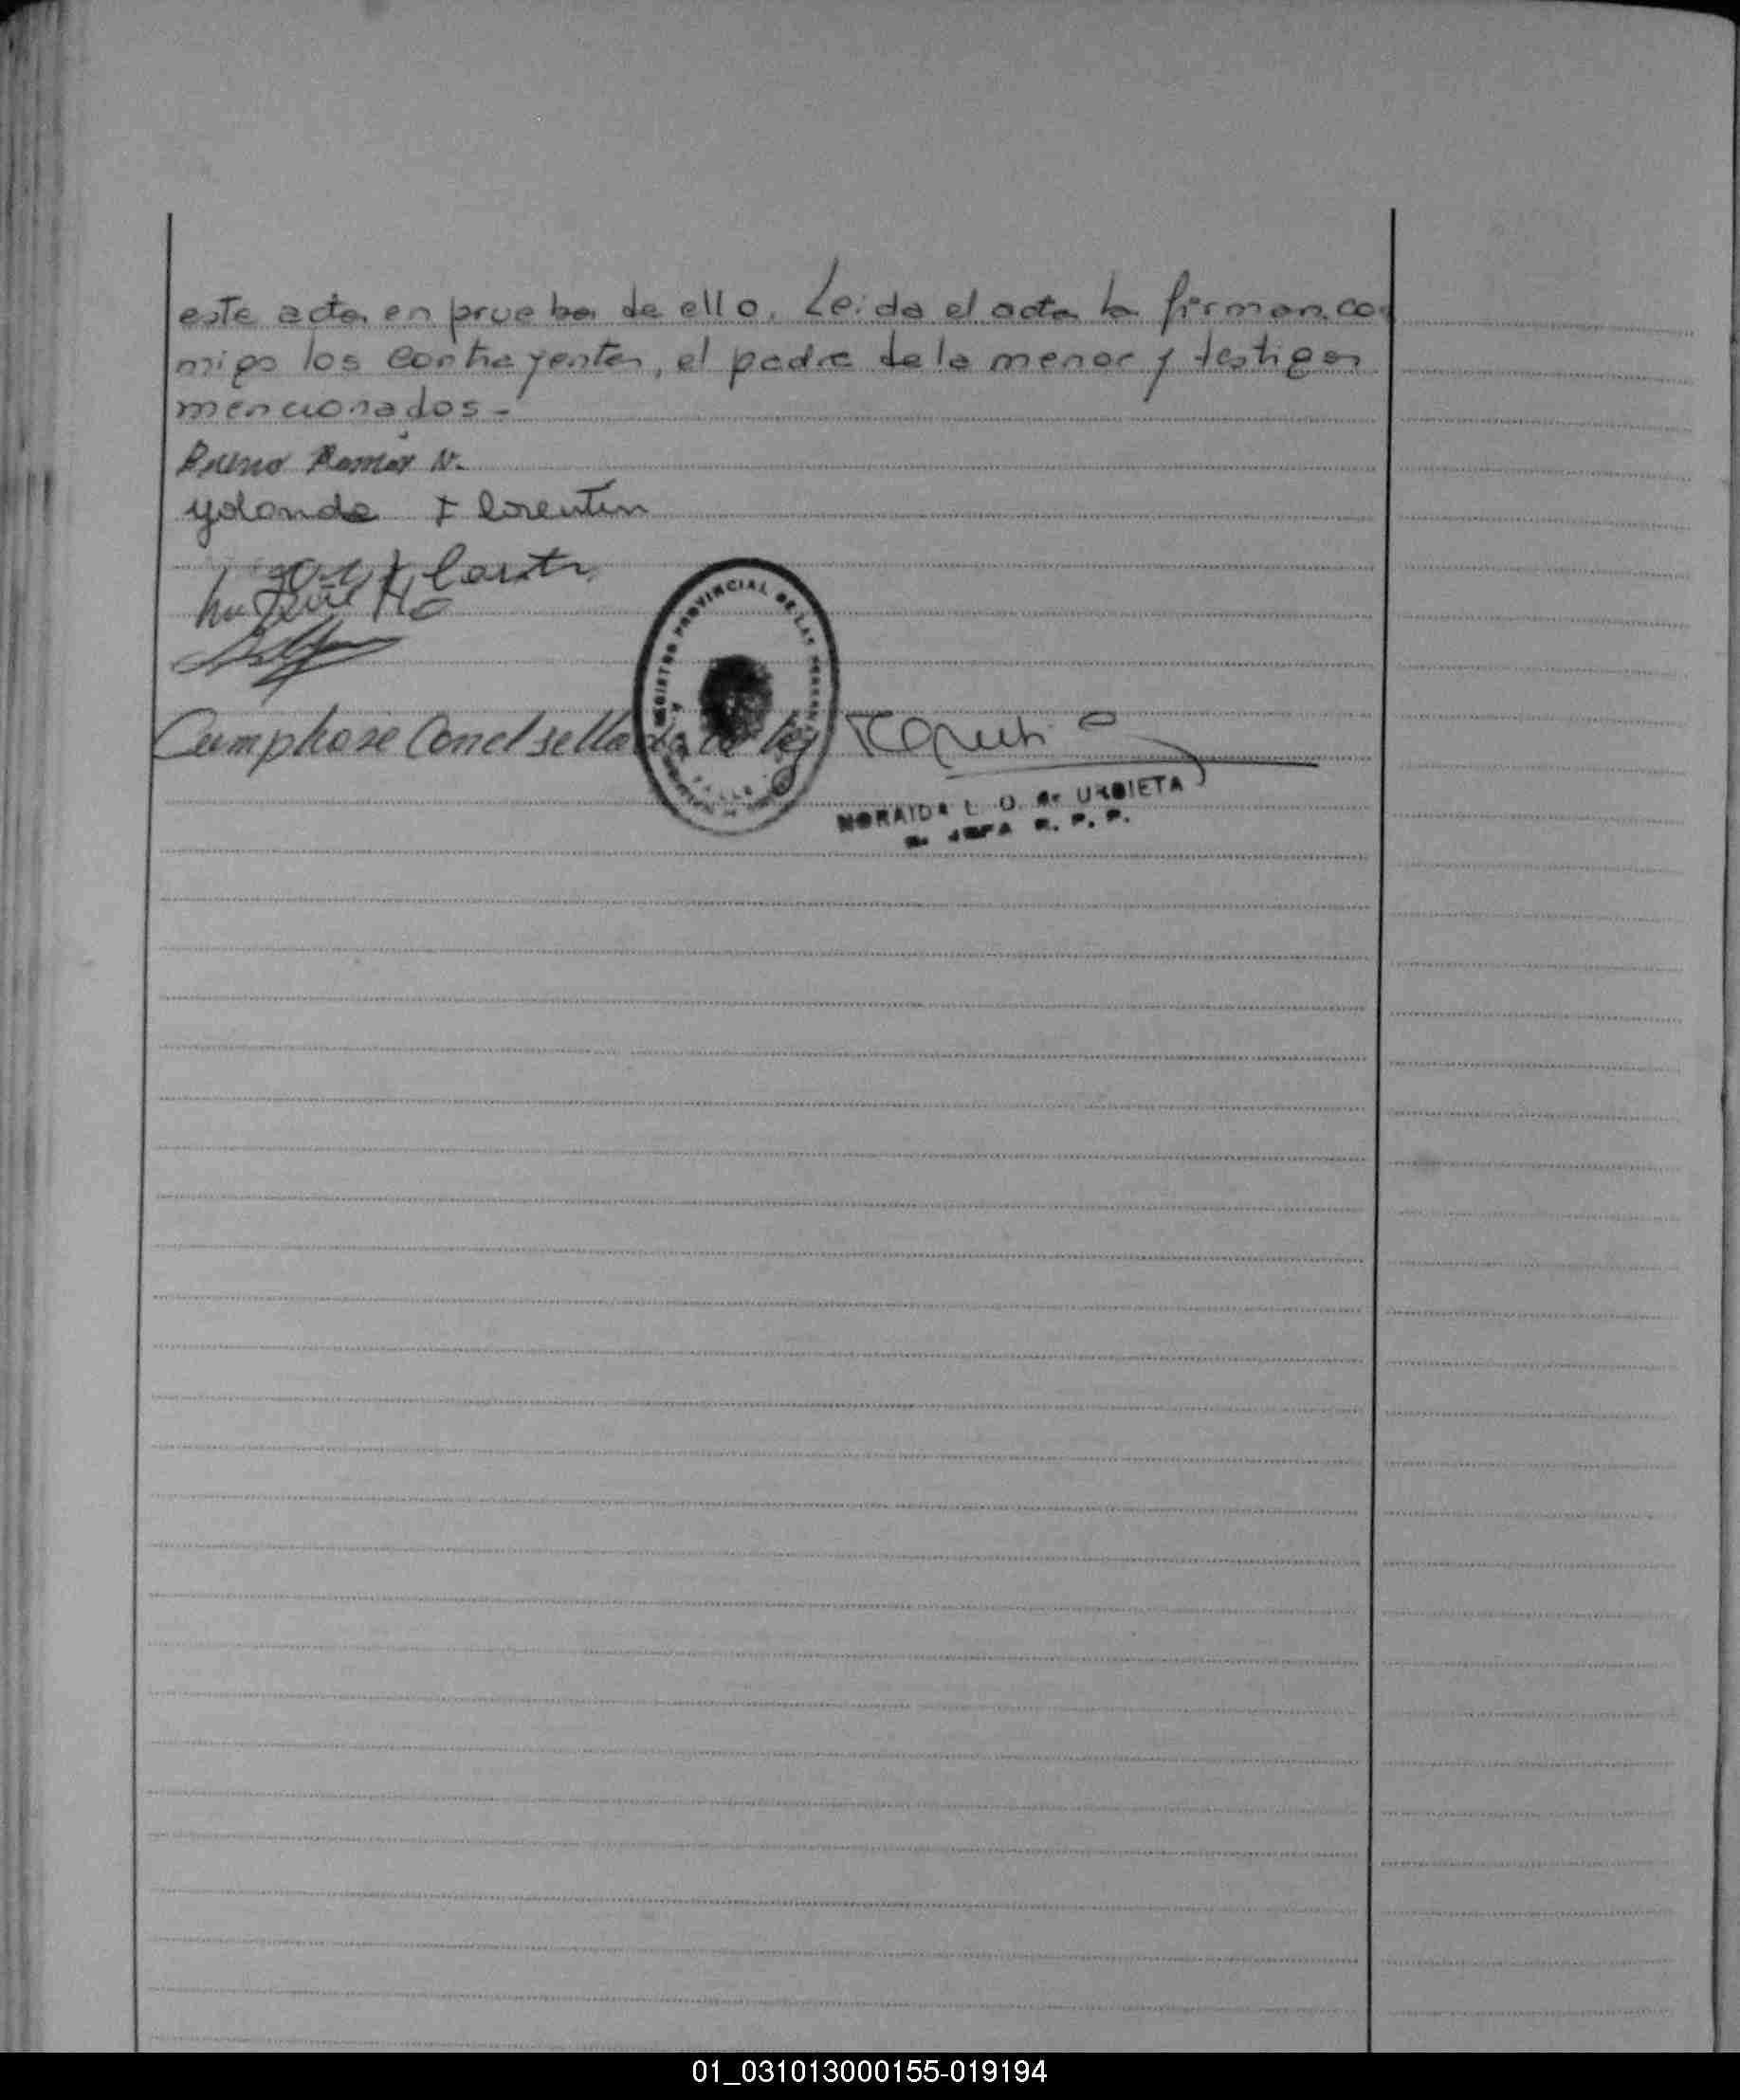 este acta en prueba de ello. Leida el acta la firman con
migo los contrayentes, el padre de la menor y testigos
mencionados.-
Ramón N.
yolanda Florentin
Cumplase con el sellado de ley
REGISTRO PROVINCIAL DE LAS PERSONAS
NORAIDA L. O. de URBIETA
JEFA R. P. P.
01_031013000155-019194